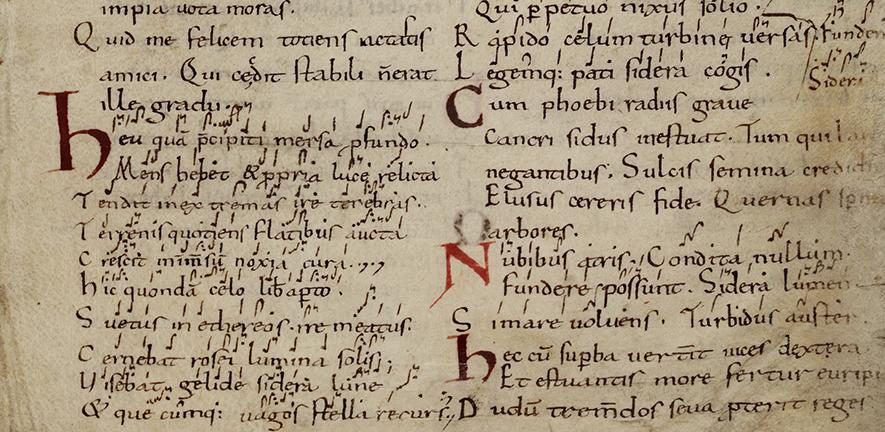 impia vota moras.
Quid me felicem totiens iactastis
amici. Qui cędit stabili n̄ erat
ille gradu.
Heu quā p̄cipiti mersa ꝓfundo.
Mens hebet & ꝓpria luce relicta
Tendit in extremas ire tenebras.
Terrenis quotiens flatibus aucta
Crescit inm̄sū noxia cura.
hic quondā cęlo lib̄ ap̄to.
Suetus in ethereos. ire meatus.
Cernebat rosei lumina solis;
Uisebat gelide sidera lune
& que cūmq: uagos stella recurs;
Qui ꝑpetuo nixus solio.
Rapido cęlum turbine versas
Legemq: pati sidera cogis.
Cum phoebi radiis grave
Cancri sidus inestuat. Tum qui
negantibus. Sulcis semina
Elusus cereris fide. Quernas
arbores.
Nubibus atris. Condita nullum.
Fundere possunt. Sidera lumen
Si mare uoluens. Turbidus auster.
Hec cū suꝑba vertit vices dextera
Et estuantis more fertur euripi
Dudū tremendos seva ꝓterit reges
Funder
Sideri